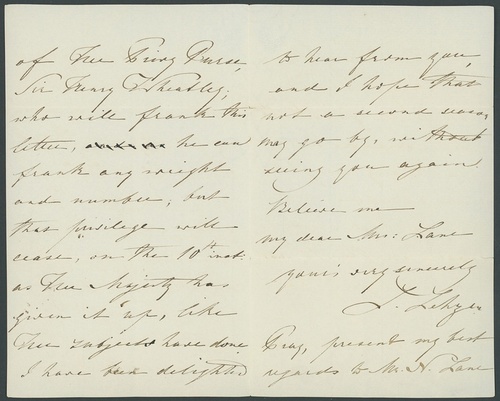 of The Privy Purse,
Sir Henry Wheatley,
who will frank this
letter, he can
frank any weight
and number, but
this privilege will
cease, on the 10th inst:
as The Majesty has
given it up, like
The subjects have done
I have been delighted
to hear from you,
and I hope that
not a second season
may go by, without
seeing you again
Believe me
my dear Mrs: Lane
yours very sincerely
L. Lehzen
Pray, present my best
regards to Mr. N. Lane